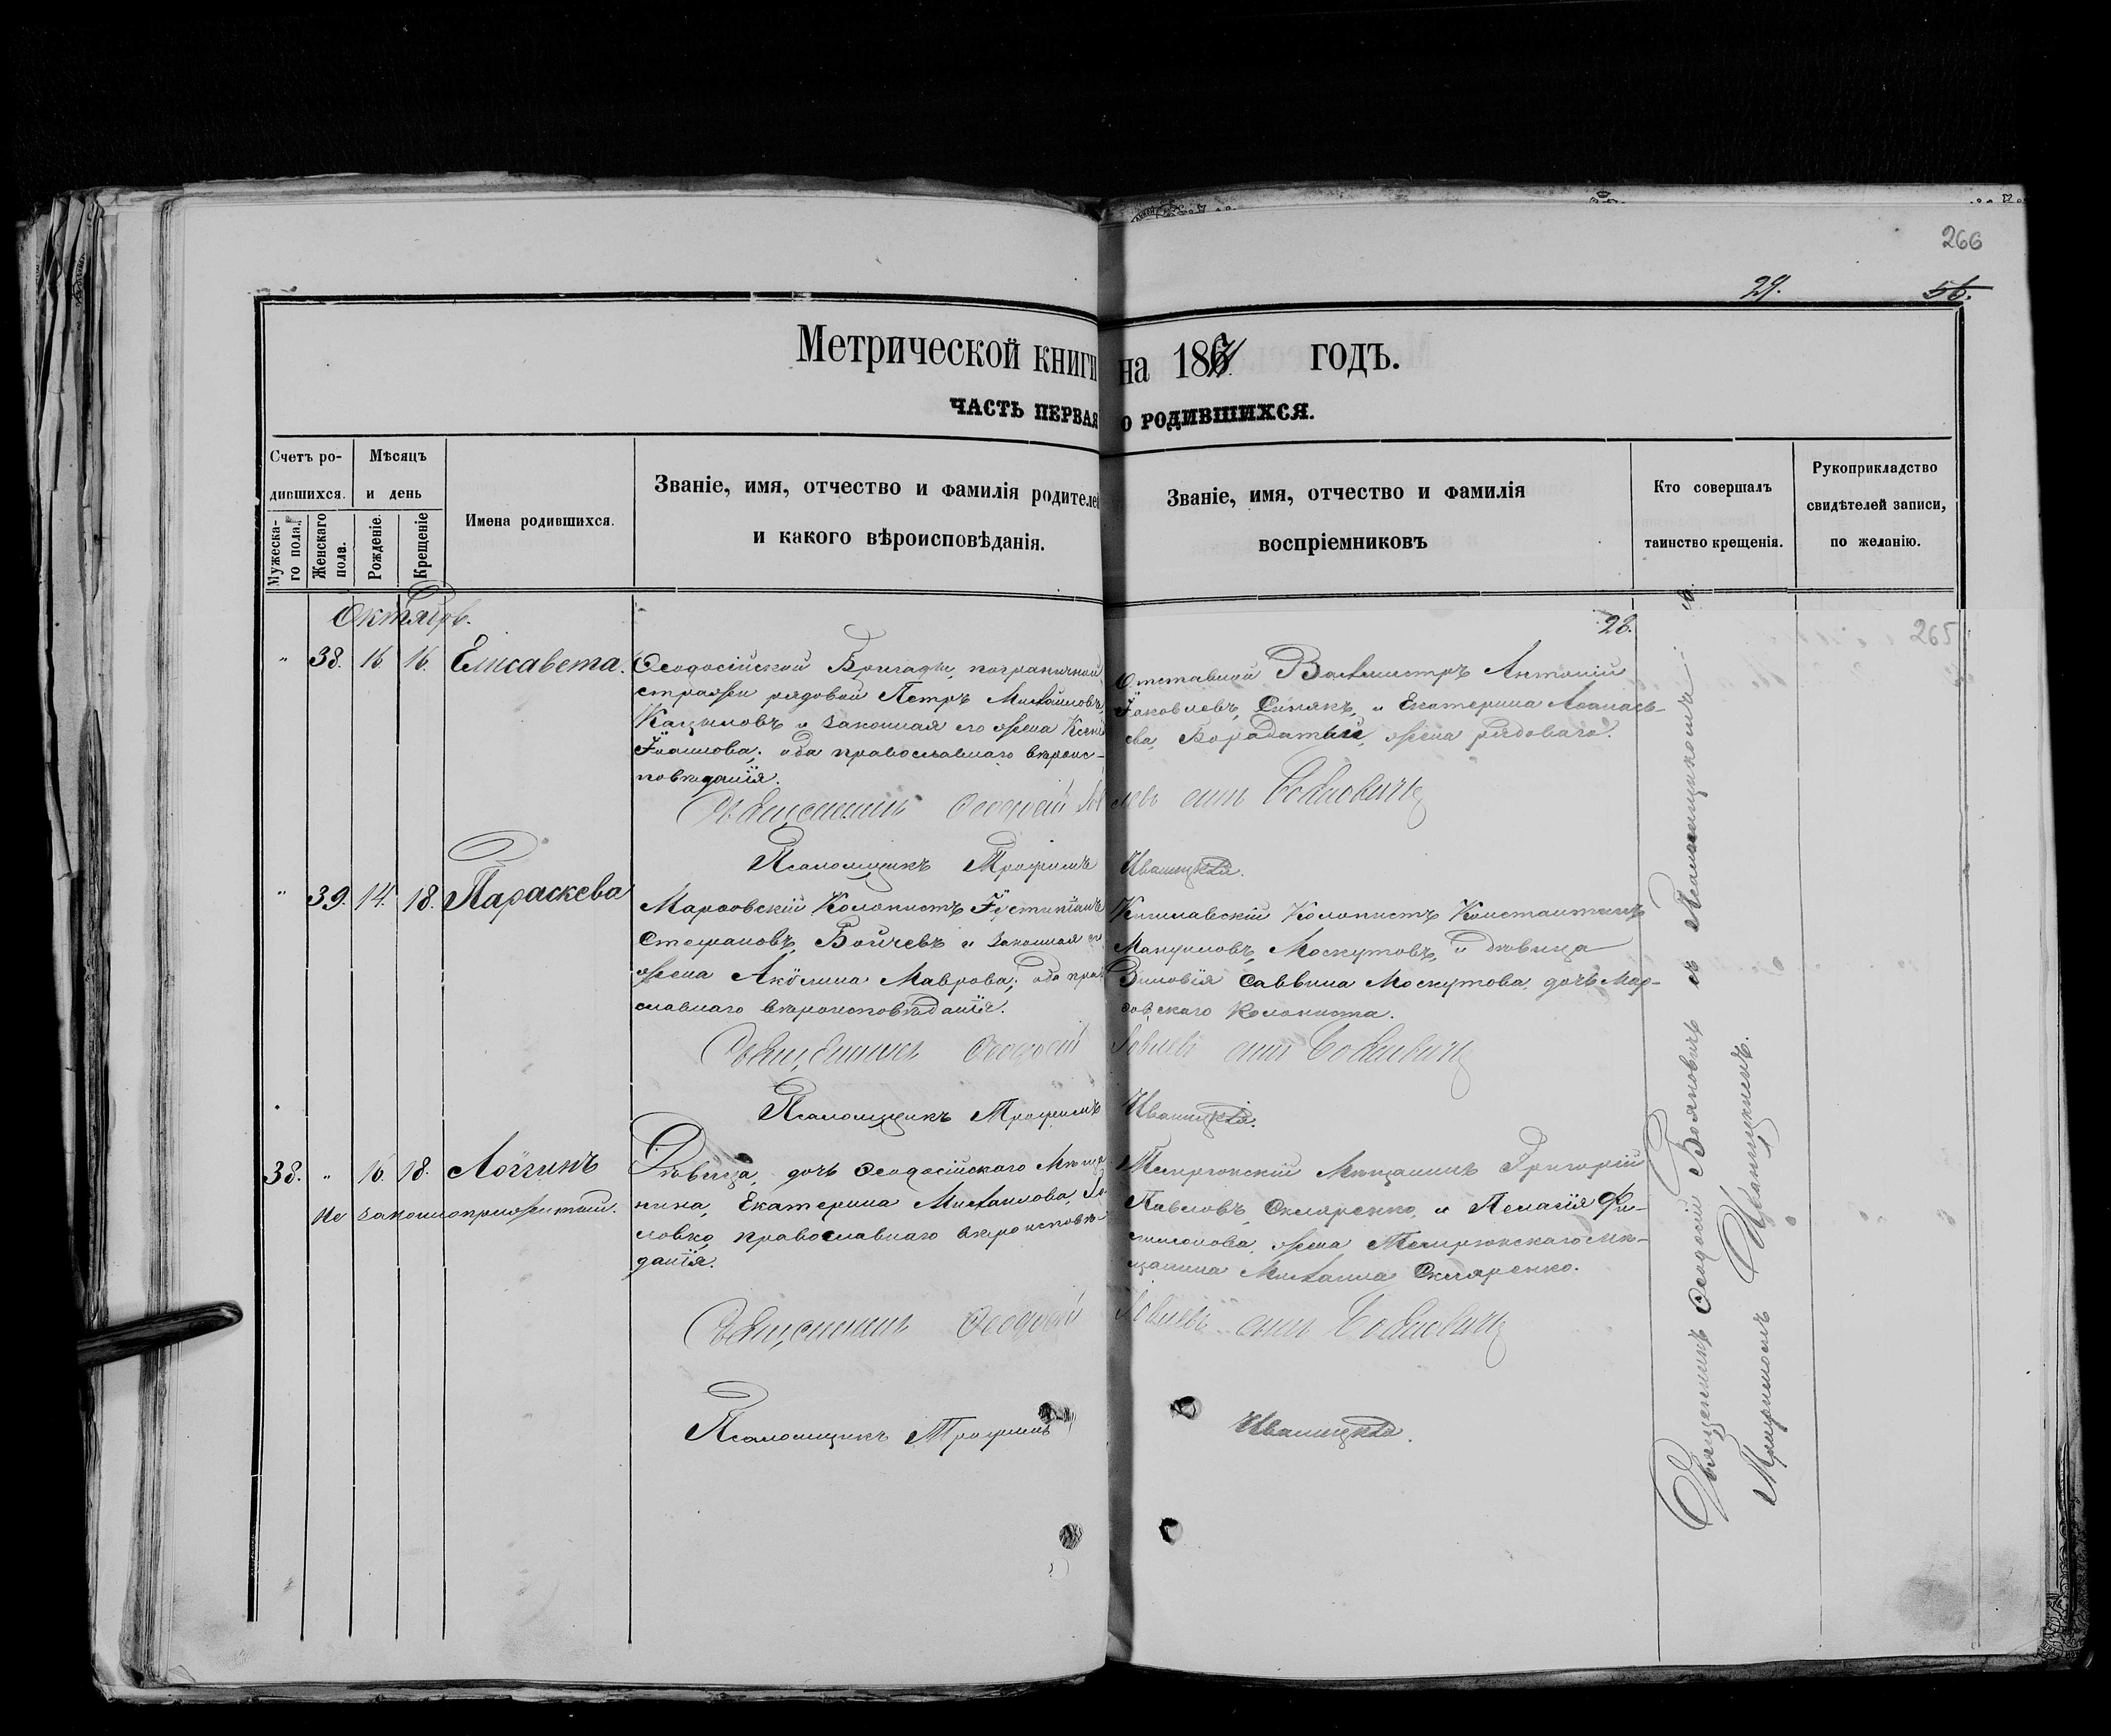 266
29.
56.
Метрической книги на 1871 годъ.
ЧАСТЬ ПЕРВАЯ О РОДИВШИХСЯ.
Счетъ ро-
дившихся.
Мужеска-
го пола.
Женскаго
пола.
Мѣсяцъ
и день
Рожденіе.
Крещеніе
Имена родившихся.
Званіе, имя, отчество и фамилія родителей
и какого вѣроисповѣданія.
Званіе, имя, отчество и фамилія
воспріемниковъ
Кто совершалъ
таинство крещенія.
Рукоприкладство
свидѣтелей записи,
по желанію.
Октябрь.
28.
265
" 38. 16 16. Елисавета.
Ѳеодосійской Бригады, пограничной
стражи рядовой Петръ Михайловъ,
и законная его жена Ксенія
Іоаннова; оба православнаго вѣроис-
повѣданія.
Отставной Вахмистръ Антоній
Іаковлевъ, Синякъ, и Екатерина Аѳанась-
ева, жена рядоваго.
Священникъ Ѳеодосій
Псаломщикъ Трофимъ Иваницкій.
" 39. 14. 18. Параскева
Марфовскій Колонистъ Іустиніанъ
Стефановъ, Бойчевъ и законная его
жена Акѵлина Маврова; оба право
славнаго вѣроисповѣданія.
Кишлавскій Колонистъ Константинъ
Мануиловъ, Москутовъ, и дѣвица
Зиновія Саввина Москутова, дочь Мар-
фовскаго Колониста.
Священникъ Ѳеодосій
Псаломщикъ Трофимъ Иваницкій.
38. " 16. 18. Логгинъ
Незаконноприжитый.
Дѣвица, дочь Ѳеодосійскаго Мѣща
нина, Екатерина Михаилова, Го
ловко, православнаго вѣроисповѣ-
данія.
Темрюкскій Мѣщанинъ Григорій
Павловъ, Скляренко, и Пелагія Фи-
лимонова, жена Темрюкскаго Мѣ-
щанина Михаила Скляренко.
Священникъ Ѳеодосій
Псаломщикъ Трофимъ Иваницкій.
Священникъ Ѳеодосій съ Псаломщикомъ
Трофимомъ Иваницкимъ.